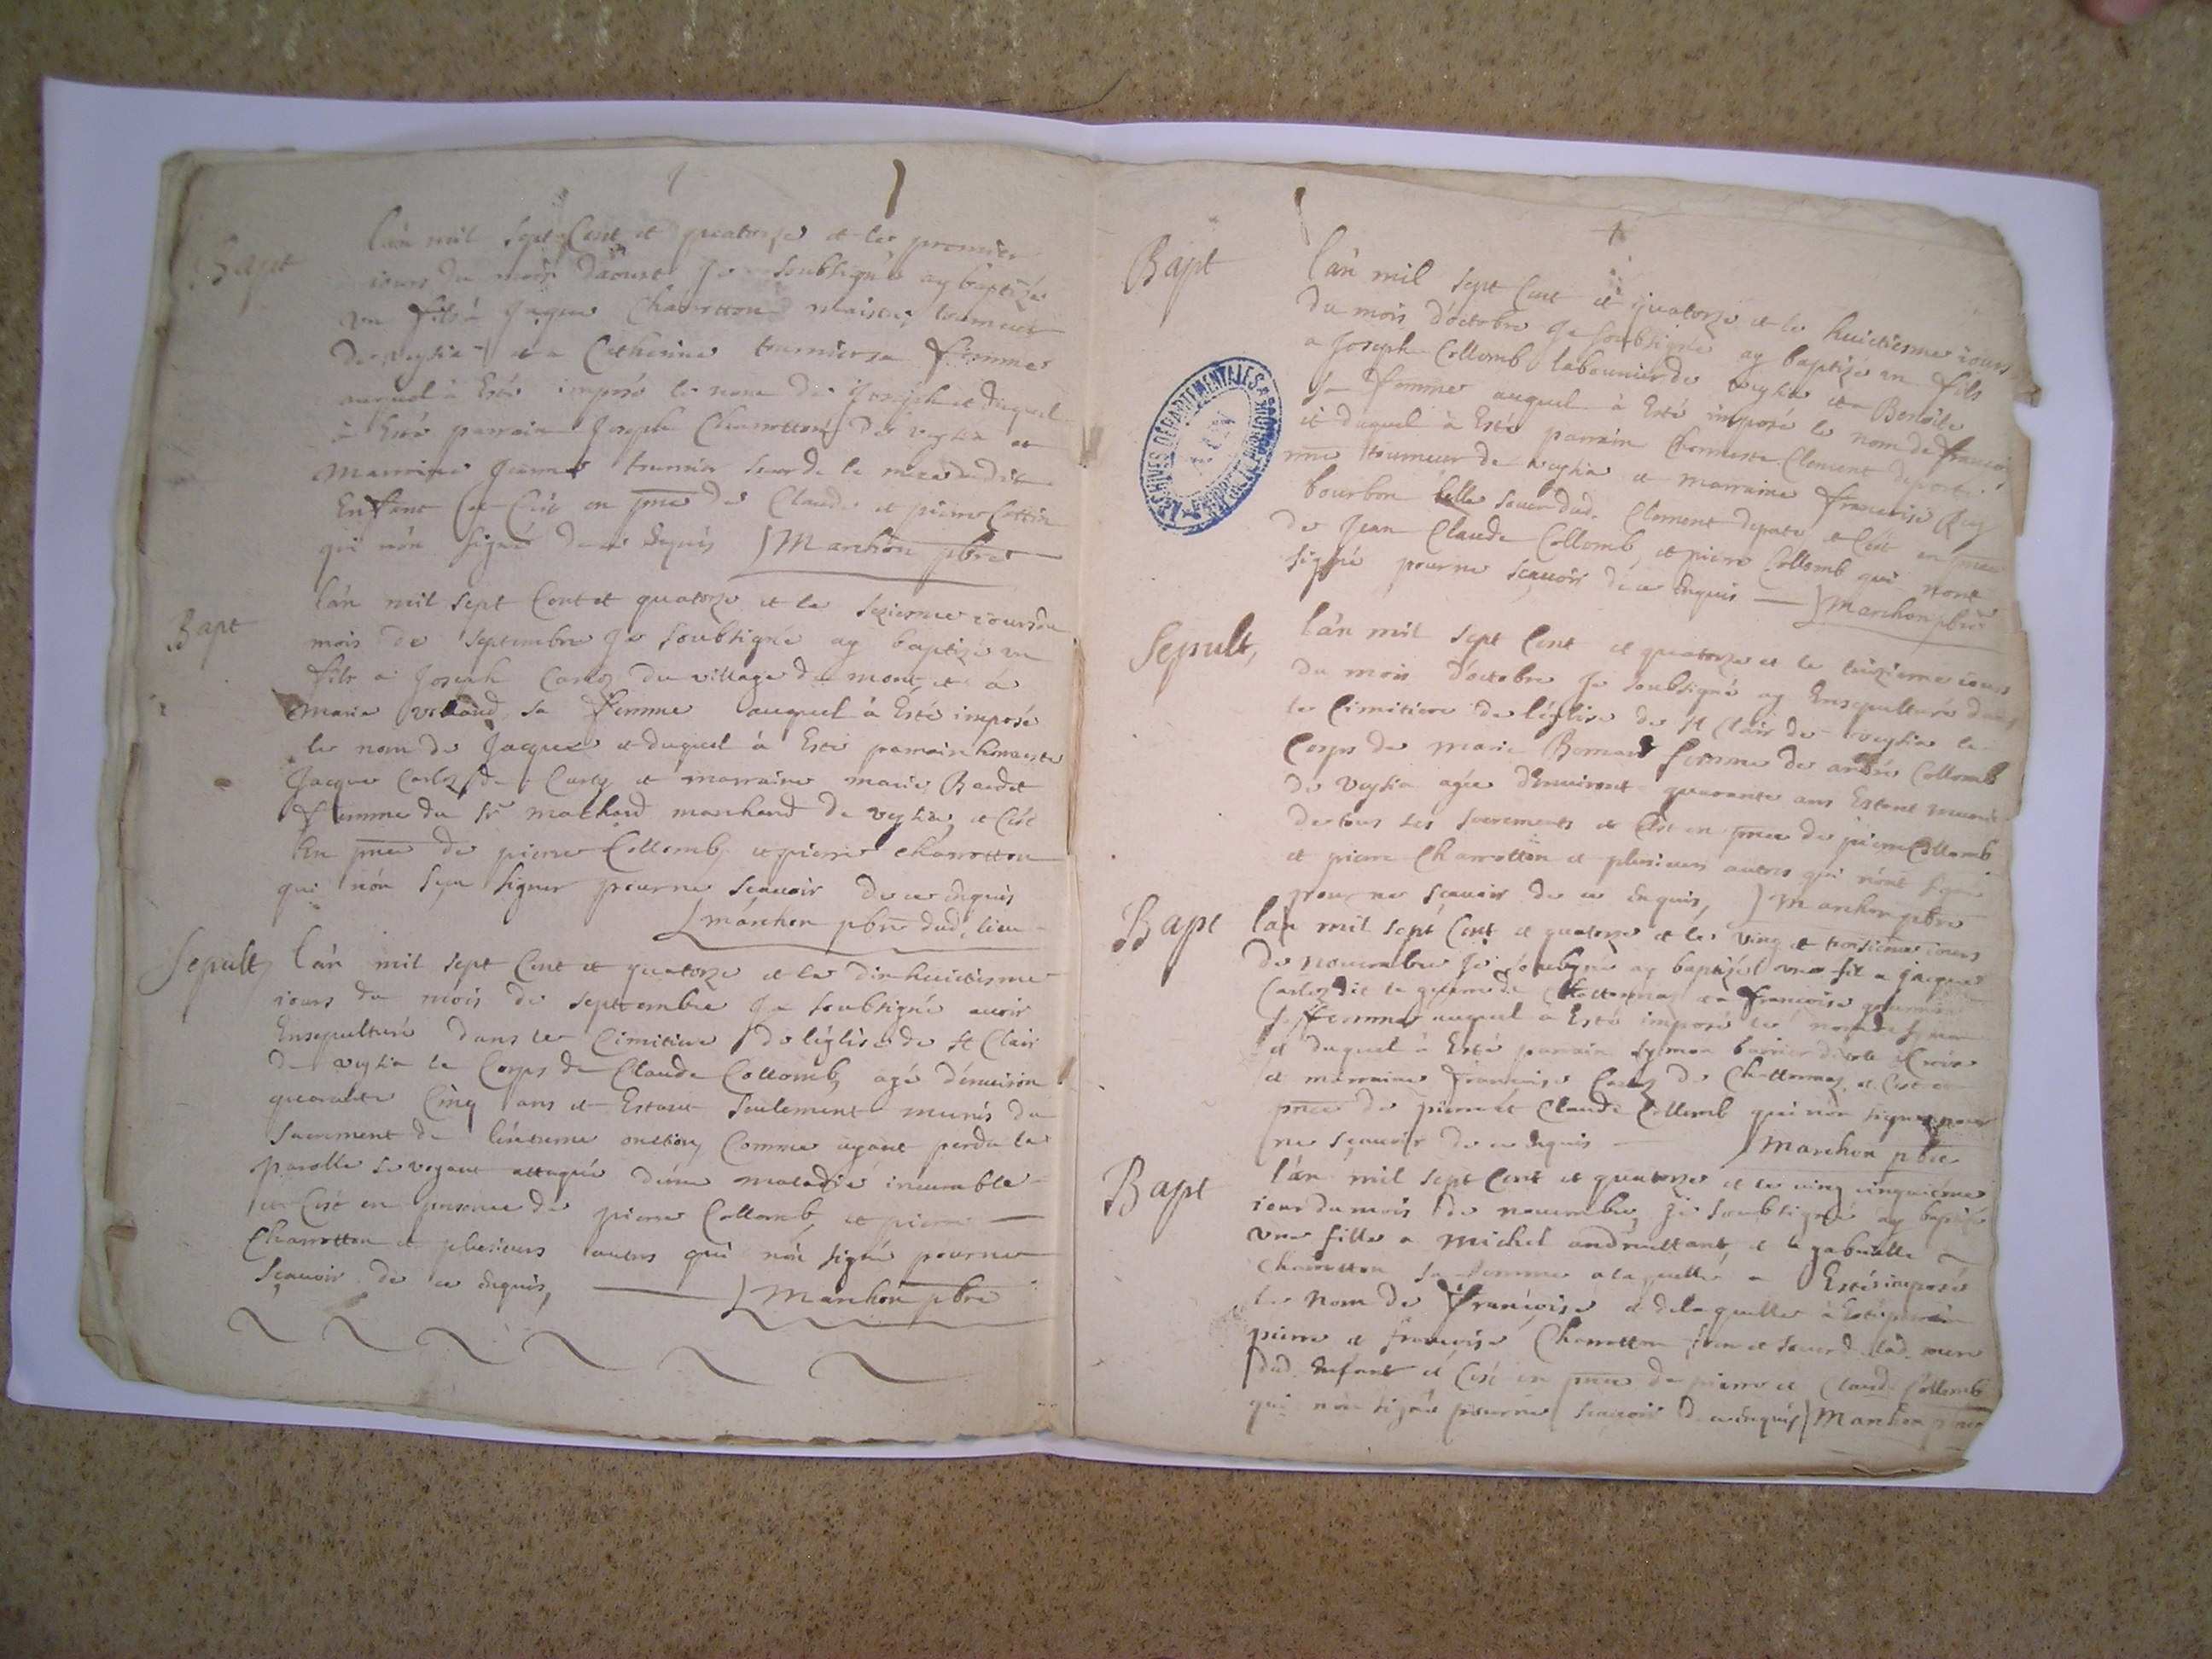 Bapt
l'an mil sept Cent et quatorze et le premier
iours du mois d'aoust Je soubsigné ay baptizé
un fils à Jaque Charrotton maistre tourneur
de veyzia et a Catherine tournier sa femme
auquel à Esté imposé le nom de Joseph et duquel
à Esté parrain Joseph Charrotton de veyzia et
Marraine Jeanne tournier soeur de la mere dudit
Enfant Ce Cest en pnce de Claude et pierre Cottin
qui nòn signé de ce Enquis Marchon pbre
Bapt
l'an mil sept Cent et quatorze et le sezieme iours du
mois de septembre Je soubsigné ay baptizé un
fils a Joseph Carloz du village du mont et à
Marie sa femme auquel à Esté imposé
le nom de Jacque et duquel à Esté parrain honneste
Jacque Carloz de et marraine marie Baudet
femme du Sr marchand de veyzia, et Cest
En pnce de pierre Collomb et pierre Charrotton
qui nòn sceu signer pour ne scauoir de ce Enquis
Marchon pbre dud. lieu
Sepult, l'an mil sept Cent et quatorze et le dixhuictiesme
iours du mois de septembre Je soubsigné auoir
Ensepulturé dans le Cimitiere de l'église de St Clair
de veyzia le Corps de Claude Collomb, agé d'enuiron
quarante Cinq ans et Estant seulement munis du
sacrement de l'éntreme onction, Comme ayant perdu la
parolle se voyant attaqué d'une maladie incurable
et Cest en presence de pierre Collomb, et pierre
Charrotton et plusieurs autres qui nòn signé pour ne
scauoir de ce Enquis, Marchon pbre
Bapt
l'an mil sept Cent et quatorze et le huictiesme iours
du mois d'octobre Je soubsigné ay baptizé un fils
a Joseph Collomb labourier de veyzia et a Benoite
sa femme auquel à Esté imposé le nom de francois
et duquel à Esté parrain honneste Clement
tourneur de veyzia et marraine francoise
bourbon belle soeur dud. Clement et Cest en pnce
de Jean Claude Collomb, et pierre Collomb qui nont
signé pour ne scauoir de ce Enquis Marchon pbre
Sepult,
l'an mil sept Cent et quatorze et le iours
du mois d'octobre Je soubsigné ay Ensepulturé dans
le Cimitiere de l'église de St Clair de veyzia le
Corps de marie femme de Collomb
de Veyzia agée d'enuiront quarante ans Estant munie
de tous les sacrements et Cest en pnce de pierre Collomb
et pierre Charrotton et plusieurs autres qui nònt signé
pour ne scauoir de ce enquis, Marchon pbre
Bapt
l'an mil sept Cent et quatorze et le ving et troisieme iours
de nouembre Je soubsigné ay baptizé un fil a Jacque
Carloz dit de Chattonnaz et a francoise
sa femme auquel a Esté imposé le nom de symon
et duquel à Esté parrain symon
et marraine francoise Carloz de Chattonnaz et Cest en
pnce de pierre et Claude Collomb qui nòn signé pour
ne scauoir de ce Enquis Marchon pbre
Bapt
l'an mil sept Cent et quatorze et le ving cinquieme
iour du mois de nouembre, Je soubsigné ay baptizé
une fille a Michel et a gabrielle
Charrotton sa femme a laquelle a Esté imposé
le Nom de françoise et de laquelle à Esté parrain
pierre et francoise Charrotton frere et soeur de lad. mere
dud. Enfant et Cest en pnce de pierre et Claude Collomb
qui nòn signé pour ne scauoir de ce enquis Marchon
ARCHIVES DÉPARTEMENTALES